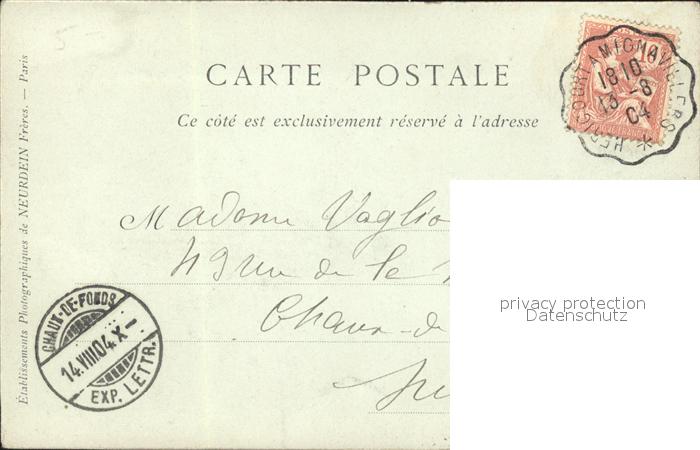 5-
CARTE POSTALE
Ce côté est exclusivement réservé à l'adresse
Etablissements Photographiques de NEURDEIN Frères. — Paris
HERICOURT A MIGNAVILLERS *
18 10
13 -8
04
10
Madame Vaglio
49 rue de la
Chaux-de
CHAUX-DE-FONDS
14.VIII04.X–
EXP. LETTR.
privacy protection
Datenschutz